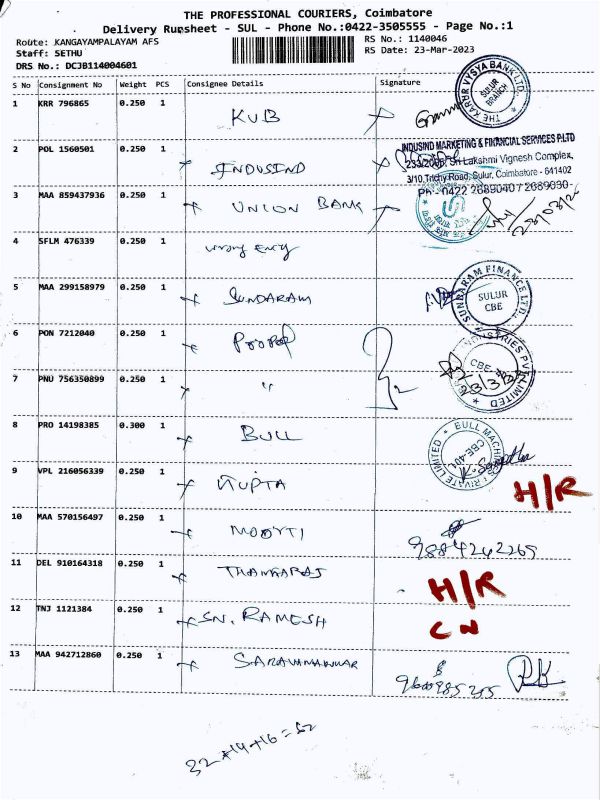 THE PROFESSIONAL COURIERS, Coimbatore
Delivery Runsheet - SUL - Phone No.:0422-3505555 - Page No.:1
Route: KANGAYAMPALAYAM AFS
Staff: SETHU
DRS No.: DCJB114004601
RS No.: 1140046
RS Date: 23-Mar-2023
S No Consignment No Weight PCS Consignee Details Signature
1 KRR 796865 0.250 1 KVB
THE KARUR VYSYA BANK LTD. SULUR BRANCH
2 POL 1560501 0.250 1 INDUSIND
INDUSIND MARKETING & FINANCIAL SERVICES P.LTD
233/2006, Sri Lakshmi Vignesh Complex,
3/10, Trichy Road, Sulur, Coimbatore - 641402
Ph : 0422 2689040 / 2689030
3 MAA 859437936 0.250 1 UNION BANK
4 SFLM 476339 0.250 1 wrong Ency
5 MAA 299158979 0.250 1 SUNDARAM
SUNDARAM FINANCE LTD. SULUR CBE
6 PON 7212040 0.250 1 Propel
INDUSTRIES PVT LIMITED CBE
23/3/23
7 PNU 756350899 0.250 1 "
8 PRO 14198385 0.300 1 BULL
BULL MACHINES PRIVATE LIMITED CBE-401
9 VPL 216056339 0.250 1 GUPTA H/R
10 MAA 570156497 0.250 1 MOORTI
9884262269
11 DEL 910164318 0.250 1 THANGARAJ H/R
12 TNJ 1121384 0.250 1 SN. RAMESH CN
13 MAA 942712860 0.250 1 SARAVANAKUMAR
RK
32+14+16=52